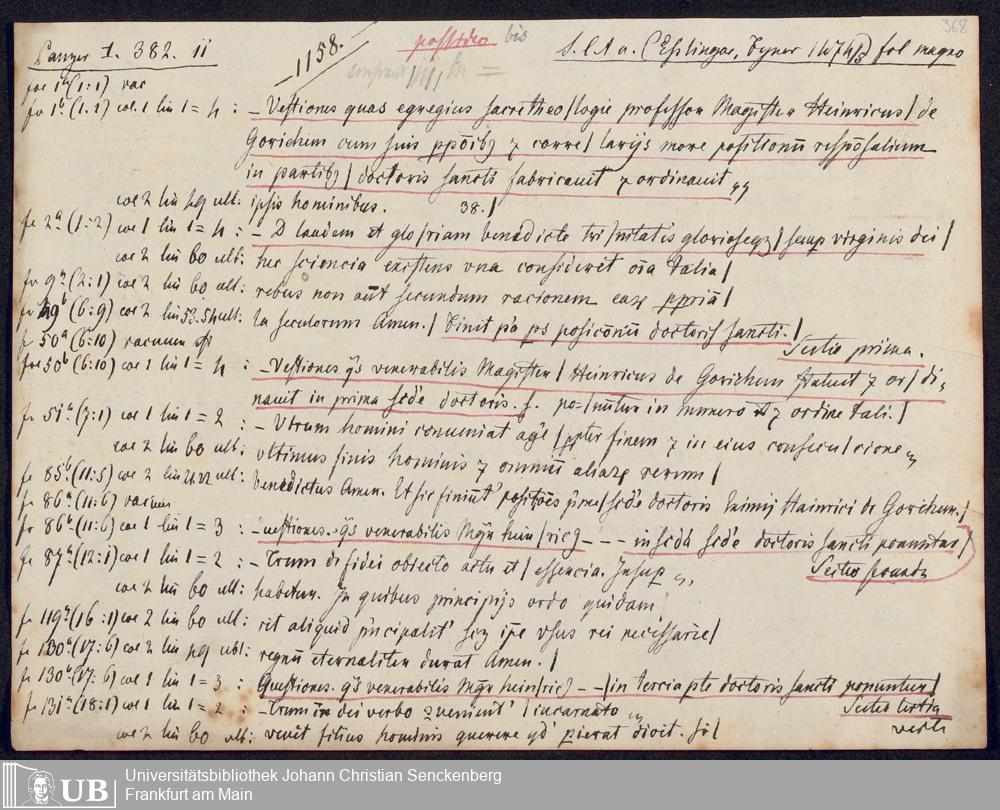 368
Panzer I. 382. 11
1158.
possideo bis
S. l. A n. (Esslingae, Fyner 1474/8) fol magno
fol 1a (1:1) vac
fo 1b (1:1) col. 1 lin 1=4 : – Vestiones quas egregius sacre theo/logie professor Magister Heinricus / de
Gorichem cum suis ppōibꝫ ⁊ corre/larijs more positionū respōsalium
in partibꝫ / doctoris sancti fabricauit ⁊ ordinauit „
coe 2 lin ult: ipsis hominibus. 38. /
fo 2a (1:2) coe 1 lin 1=4 : – D laudem et glo/riam benedicte tri/nitatis glorioseqꝫ / semp virginis dei /
coe 2 lin 60 ult: hec sciencia existens vna consideret oīa talia /
fo 9a (2:1) coe 2 lin 60 ult: rebus non aūt secundum racionem eaꝝ ppriā /
fo 49b (6:9) coe 2 lin 53-54 ult: la seculorum Amen. / Finit pa ps posicōnū doctoris sancti. /
fo 50a (6:10) vacuum
Sectio prima.
foe 50b (6:10) coe 1 lin 1=4 : – Vestiones qs venerabilis Magister / Heinricus de Gorichem statuit ⁊ or/di,
nauit in prima scde doctoris. s. po=/nūtur in numero ⁊ ordine tali. /
fo 51a (7:1) coe 1 lin 1=2 : – Vtrum homini conueniat agē / ppter finem ⁊ in eius consecu/cione
coe 2 lin 60 ult: vltimus finis hominis ⁊ omniū aliaꝝ rerum /
fo 85b (11:5) coe 2 lin 21.22 ult: benedictus Amen. Et sic finiūt' positōes pme/scde doctoris Eximij Hainrici de Gorichem. /
fo 86a (11:6) vacuum
fo 86b (11:6) coe 1 lin 1=3 : – uestiones. qs venerabilis Mgr hein/ric9 – – – in scda scde doctoris sancti ponuntur /
fo 87a (12:1) coe 1 lin 1=2 : – trum de fidei obiecto actu et / essencia. Insup „
Sectio secunda
coe 2 lin 60 ult: habetur. In quibus principijs ordo quidam
fo 119b (16:1) coe 2 lin 60 ult: rit aliquid pncipalit' seq ipe vsus rei necessarie /
fo 130a (17:6) coe 2 lin ult: regnū eternaliter durat Amen. /
fo 130b (17:6) coe 1 lin 1=3 : Questiones. qs venerabilis Mgr hein/ric9 – – / in tercia pte doctoris sancti ponuntur /
fo 131a (18:1) coe 1 lin 1=2 : – trum in dei verbo ꝯueniūt' / incarnato
Sectio tertia
coe 2 lin 60 ult: venit filius hominis querere qd pierat dicit. si /
verte
UB
Universitätsbibliothek Johann Christian Senckenberg
Frankfurt am Main